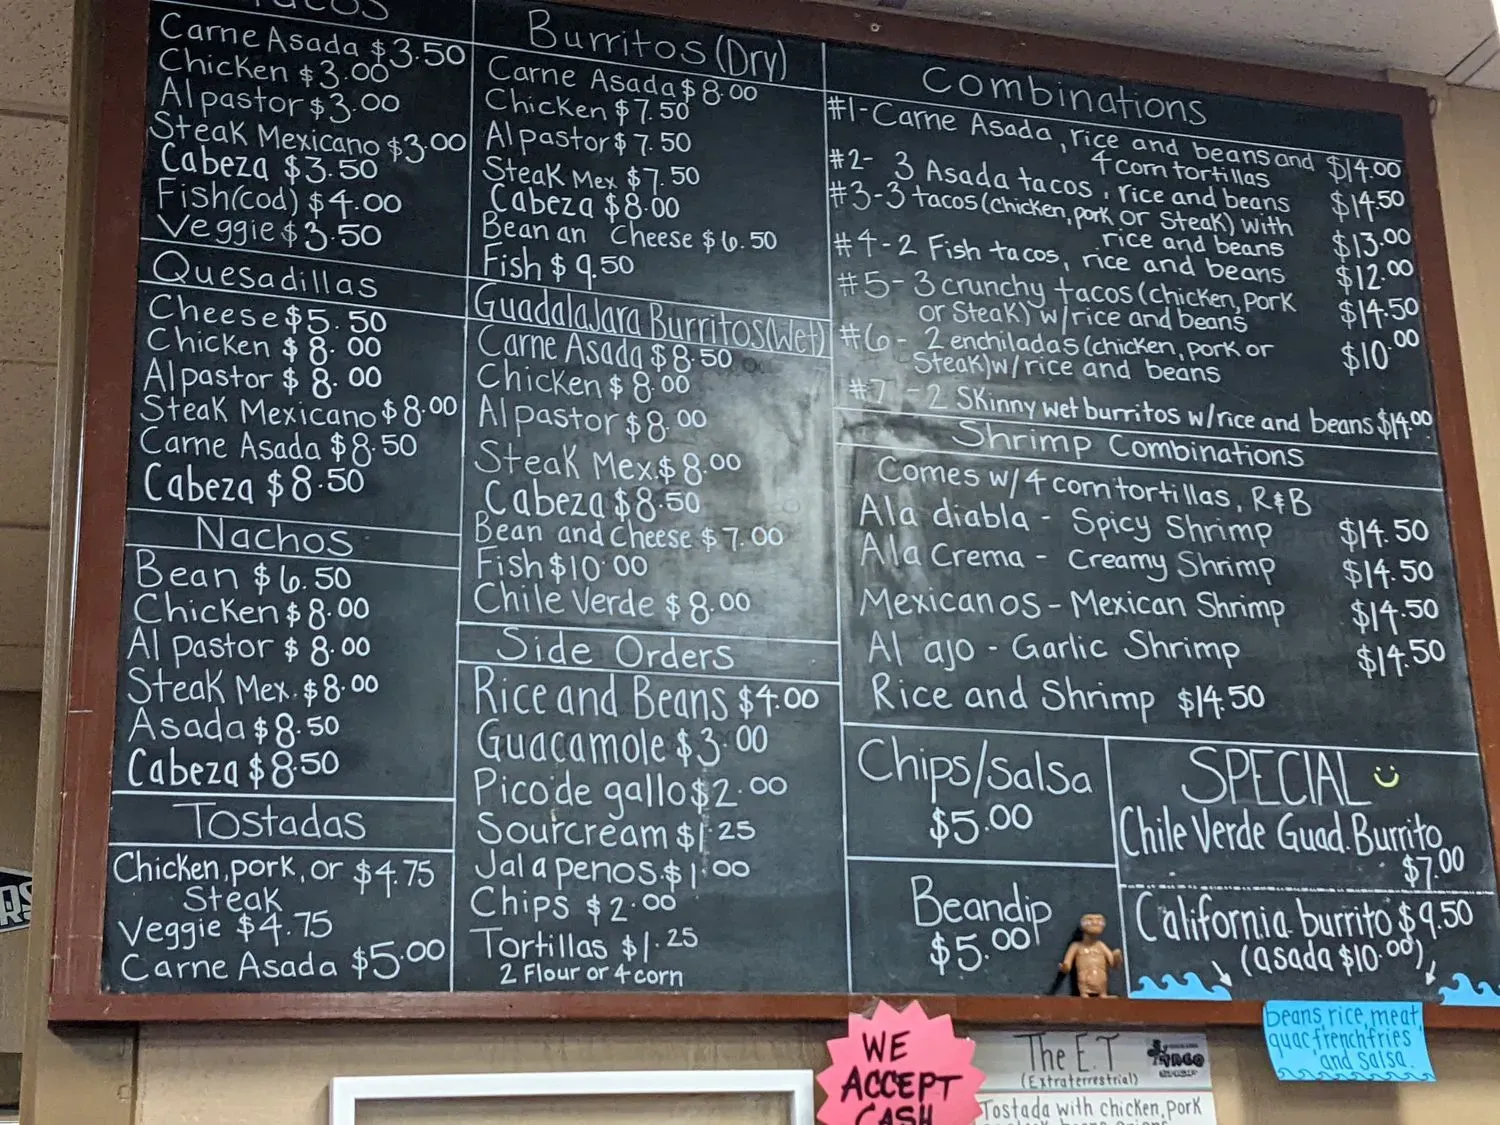 Tacos
Carne Asada $3.50
Chicken $3.00
Al pastor $3.00
Steak Mexicano $3.00
Cabeza $3.50
Fish(cod) $4.00
Veggie $3.50
Quesadillas
Cheese $5.50
Chicken $8.00
Al pastor $8.00
Steak Mexicano $8.00
Carne Asada $8.50
Cabeza $8.50
Nachos
Bean $6.50
Chicken $8.00
Al pastor $8.00
Steak Mex. $8.00
Asada $8.50
Cabeza $8.50
Tostadas
Chicken, pork, or $4.75
Steak
Veggie $4.75
Carne Asada $5.00
Burritos (Dry)
Carne Asada $8.00
Chicken $7.50
Al pastor $7.50
Steak Mex $7.50
Cabeza $8.00
Bean an cheese $6.50
Fish $9.50
Guadalajara Burritos (Wet)
Carne Asada $8.50
Chicken $8.00
Al pastor $8.00
Steak Mex. $8.00
Cabeza $8.50
Bean and cheese $7.00
Fish $10.00
Chile Verde $8.00
Side Orders
Rice and Beans $4.00
Guacamole $3.00
Pico de gallo $2.00
Sourcream $1.25
Jalapenos $1.00
Chips $2.00
Tortillas $1.25
2 Flour or 4 corn
Combinations
#1-Carne Asada, rice and beans and $14.00
4 corn tortillas
#2- 3 Asada tacos, rice and beans $14.50
#3-3 tacos (chicken, pork or steak) with $13.00
rice and beans
#4-2 Fish tacos, rice and beans $12.00
#5-3 crunchy tacos (chicken, pork $14.50
or steak) w/rice and beans
#6- 2 enchiladas (chicken, pork or $10.00
steak) w/rice and beans
#7 - 2 Skinny wet burritos w/rice and beans $14.00
Shrimp Combinations
Comes w/4 corn tortillas, R&B
Ala diabla - Spicy Shrimp $14.50
Ala Crema - Creamy Shrimp $14.50
Mexicanos - Mexican Shrimp $14.50
Al ajo - Garlic Shrimp $14.50
Rice and Shrimp $14.50
Chips/salsa
$5.00
Beandip
$5.00
SPECIAL
Chile Verde Guad. Burrito
$7.00
California burrito $9.50
(asada $10.00)
beans, rice, meat,
guac, french fries
and salsa.
WE
ACCEPT
CASH
The E.T
(Extraterrestrial)
Tostada with chicken, pork